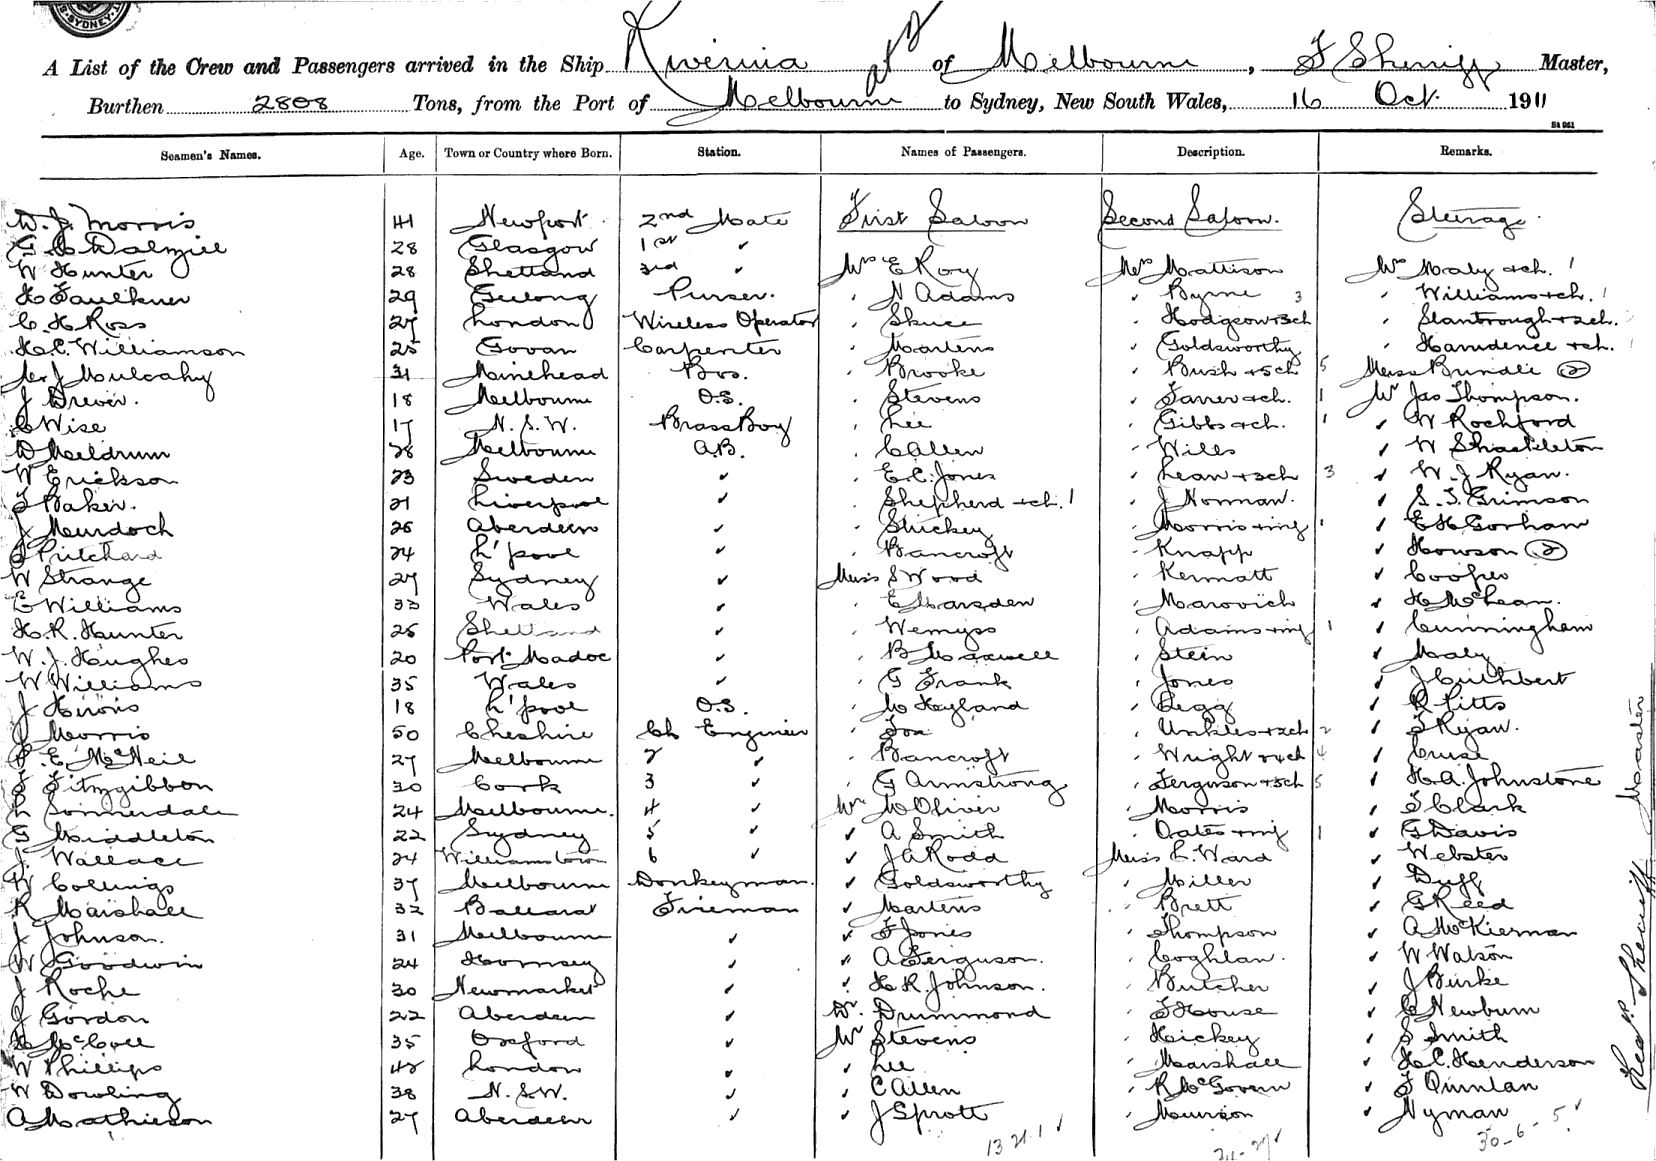 SYDNEY
A List of the Crew and Passengers arrived in the Ship Riverina of Melbourne, F Sherriff Master,
Burthen 2808 Tons, from the Port of Melbourne to Sydney, New South Wales, 16 Oct. 1911
Seamen's Names. Age. Town or Country where Born. Station. Names of Passengers. Description. Remarks.
First Saloon Second Saloon. Steerage.
D. J. Morris 41 Newport 2nd Mate
G Dalziell 28 Glasgow 1st ✓
W Hunter 28 Shetland 3rd ✓ Mrs E Roy Mrs Mattison Mrs Maly + ch. 1
H Faulkner 29 Geelong Purser. N Adams Byrne 3 Williams + ch. 1
C. H. Ross 27 London Wireless Operator Skuce Hodgson + 3ch Stanbrough + 2ch.
H. C. Williamson 25 Govan Carpenter Martens Goldsworthy + ch.
J Mulcahy 31 Minehead Bos. Brooke Bush + 5ch 5 Miss (2)
J Drever. 18 Melbourne O.S. Stevens Farrer + ch. 1 Mr Jas Thompson.
C Wise 17 N.S.W. Brass Boy Lee Gibbs + ch. 1 W Rochford
D Meldrum 28 Melbourne A.B. C Allen Wills W Shackleton
W Erickson 23 Sweden ✓ E. C. Jones Lean + 3ch 3 W. J Ryan.
T Baker. 21 Liverpool ✓ Shepherd + ch. 1 J Norman. S. T. Grimson
J Murdoch 26 Aberdeen ✓ Stuckey Morris + inf 1 E H Gorham
Pritchard 24 L'pool ✓ Bancroft Knapp Howson (2)
W Strange 27 Sydney ✓ Miss S Wood Kermatt Cooper
E Williams 33 Wales ✓ E Marsden Marovich H McLean.
H. R. Hunter 25 Shetland ✓ Wemyss Adams + inf 1 Cunningham
W. J. Hughes 20 Port Madoc ✓ B Maxwell Stein Maly
W Williams 35 Wales ✓ G Frank Jones J Cuthbert
J 18 L'pool O.S. M Heyland Begg R Pitts
J Morris 50 Cheshire Ch Engineer Fox Unkles + 2ch 2 T Ryan.
E. McNeil 27 Melbourne 2 ✓ Bancroft Wright + 4ch 4 Cruse
F Fitzgibbon 30 Cork 3 ✓ G Armstrong Ferguson + 5ch 5 H. A. Johnstone
L Sonnerdale 24 Melbourne. 4 ✓ Mr W Oliver Morris T Clark
G Middleton 22 Sydney 5 ✓ A Smith Oates + inf 1 G Davis
J. Wallace 24 Williamstown 6 ✓ J A Rodd Miss L. Ward Webster
W Collings 37 Melbourne Donkeyman. Goldsworthy Miller Duff
R Marshall 32 Ballarat Fireman Martens Brett G Reed
J Johnson. 31 Melbourne ✓ F Jones Thompson A McKiernan
W Goodwin 24 Hornsey ✓ A Ferguson. Coghlan. W Watson
J Roche 30 Newmarket ✓ H R. Johnson. Butcher J Burke
J Gordon 22 Aberdeen ✓ Dr. Drummond F House C Newburn
McColl 35 Oxford ✓ Mr Stevens Hickey S Smith
W Phillips 42 London ✓ Lee Marshall H. C. Henderson
W Dowling 38 N.S.W. ✓ C Allen R McGovern F Quinlan
A Mathieson 27 Aberdeen ✓ J Sprott Munson Nyman
13 21 1 ✓ 24 - 27 ✓ 30 - 6 - 5 ✓
Sherriff Master